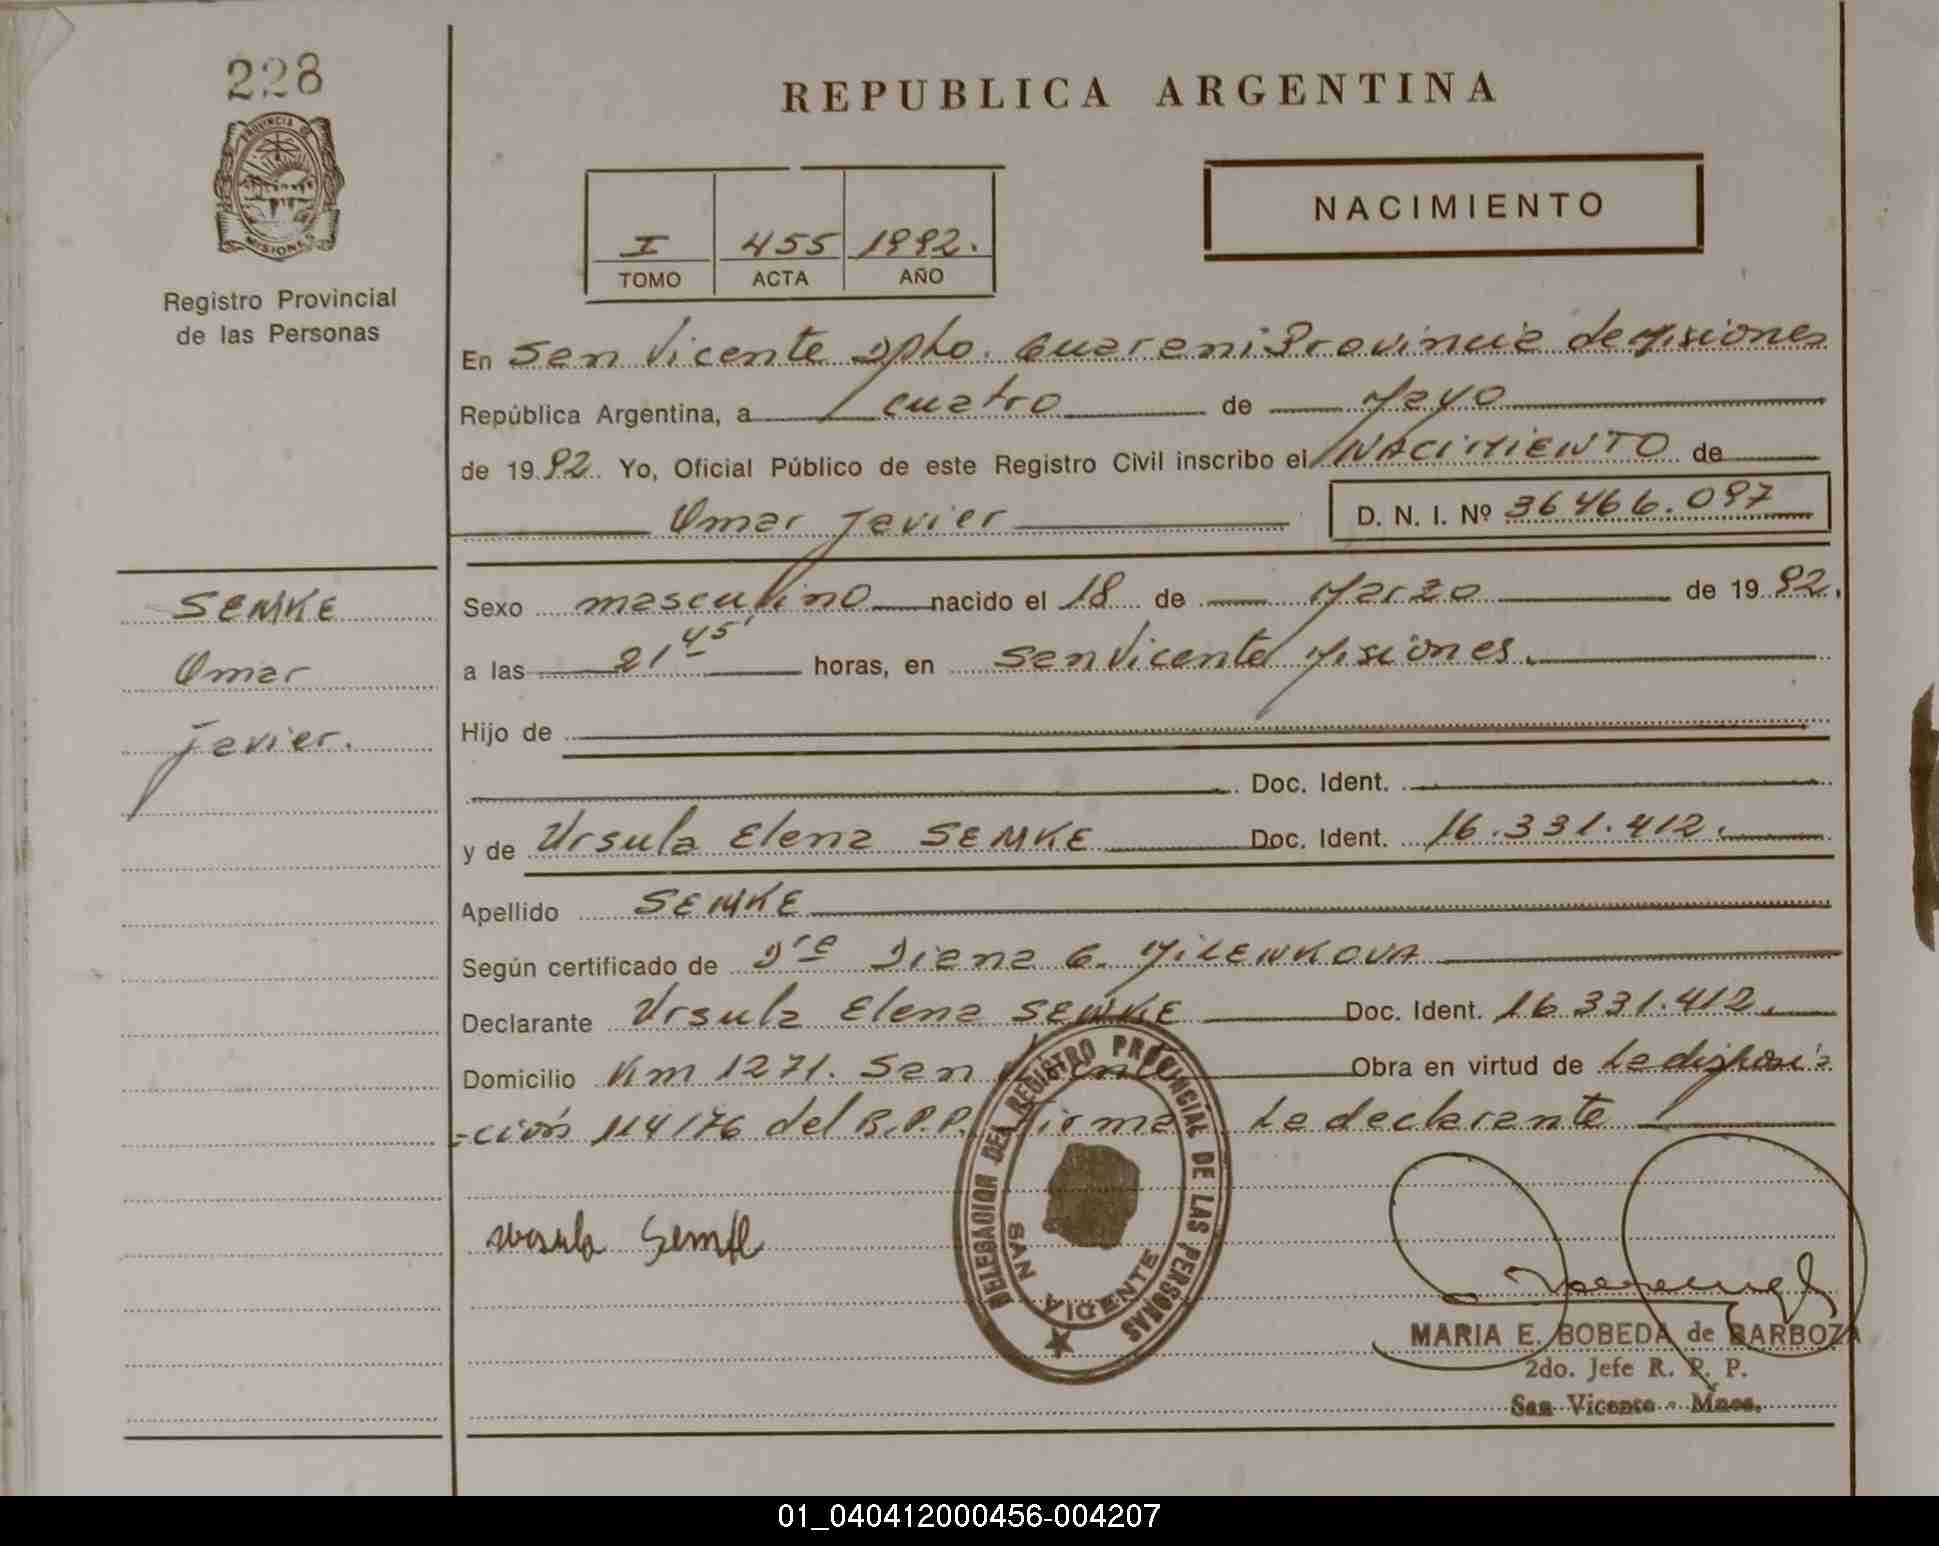 228
PROVINCIA DE
MISIONES
Registro Provincial
de las Personas
SEMKE
Omar
Javier.
REPUBLICA ARGENTINA
I 455 1992.
TOMO ACTA AÑO
NACIMIENTO
En San Vicente Dpto. Guarani Provincia de Misiones
República Argentina, a cuatro de Mayo
de 19 92 Yo, Oficial Público de este Registro Civil inscribo el NACIMIENTO de
Omar Javier D. N. I. Nº 36466.097
Sexo masculino nacido el 18 de Marzo de 19 92.
a las 21 45' horas, en San Vicente Misiones.
Hijo de
Doc. Ident.
y de Ursula Elena SEMKE Doc. Ident. 16.331.412.
Apellido SEMKE
Según certificado de Dra Diana G. MILENKOVA
Declarante Ursula Elena SEMKE Doc. Ident. 16.331.412.
Domicilio Km 1271. San Vicente Obra en virtud de La disposi
-ción 114/76 del R.P.P. Firma La declarante
Ursula Semke
DELEGACION DEL REGISTRO PROVINCIAL DE LAS PERSONAS
SAN VICENTE
MARIA E. BOBEDA de BARBOZA
2do. Jefe R. P. P.
San Vicente - Mnes.
01_040412000456-004207